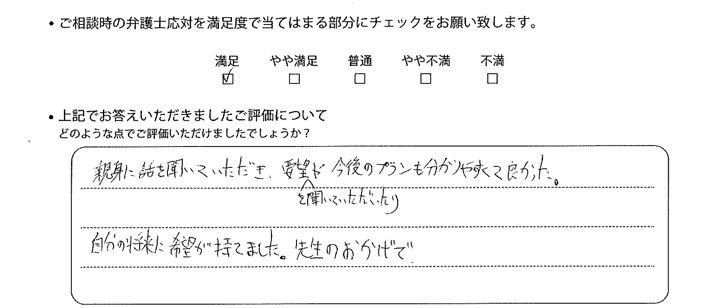 • ご相談時の弁護士応対を満足度で当てはまる部分にチェックをお願い致します。
満足 やや満足 普通 やや不満 不満
☑ □ □ □ □
• 上記でお答えいただきましたご評価について
どのような点でご評価いただけましたでしょうか?
親身に話を聞いていただき、要望や 今後のプランも分かりやすくて良かった。
を聞いていただいたり
自分の将来に希望が持てました。先生のおかげで